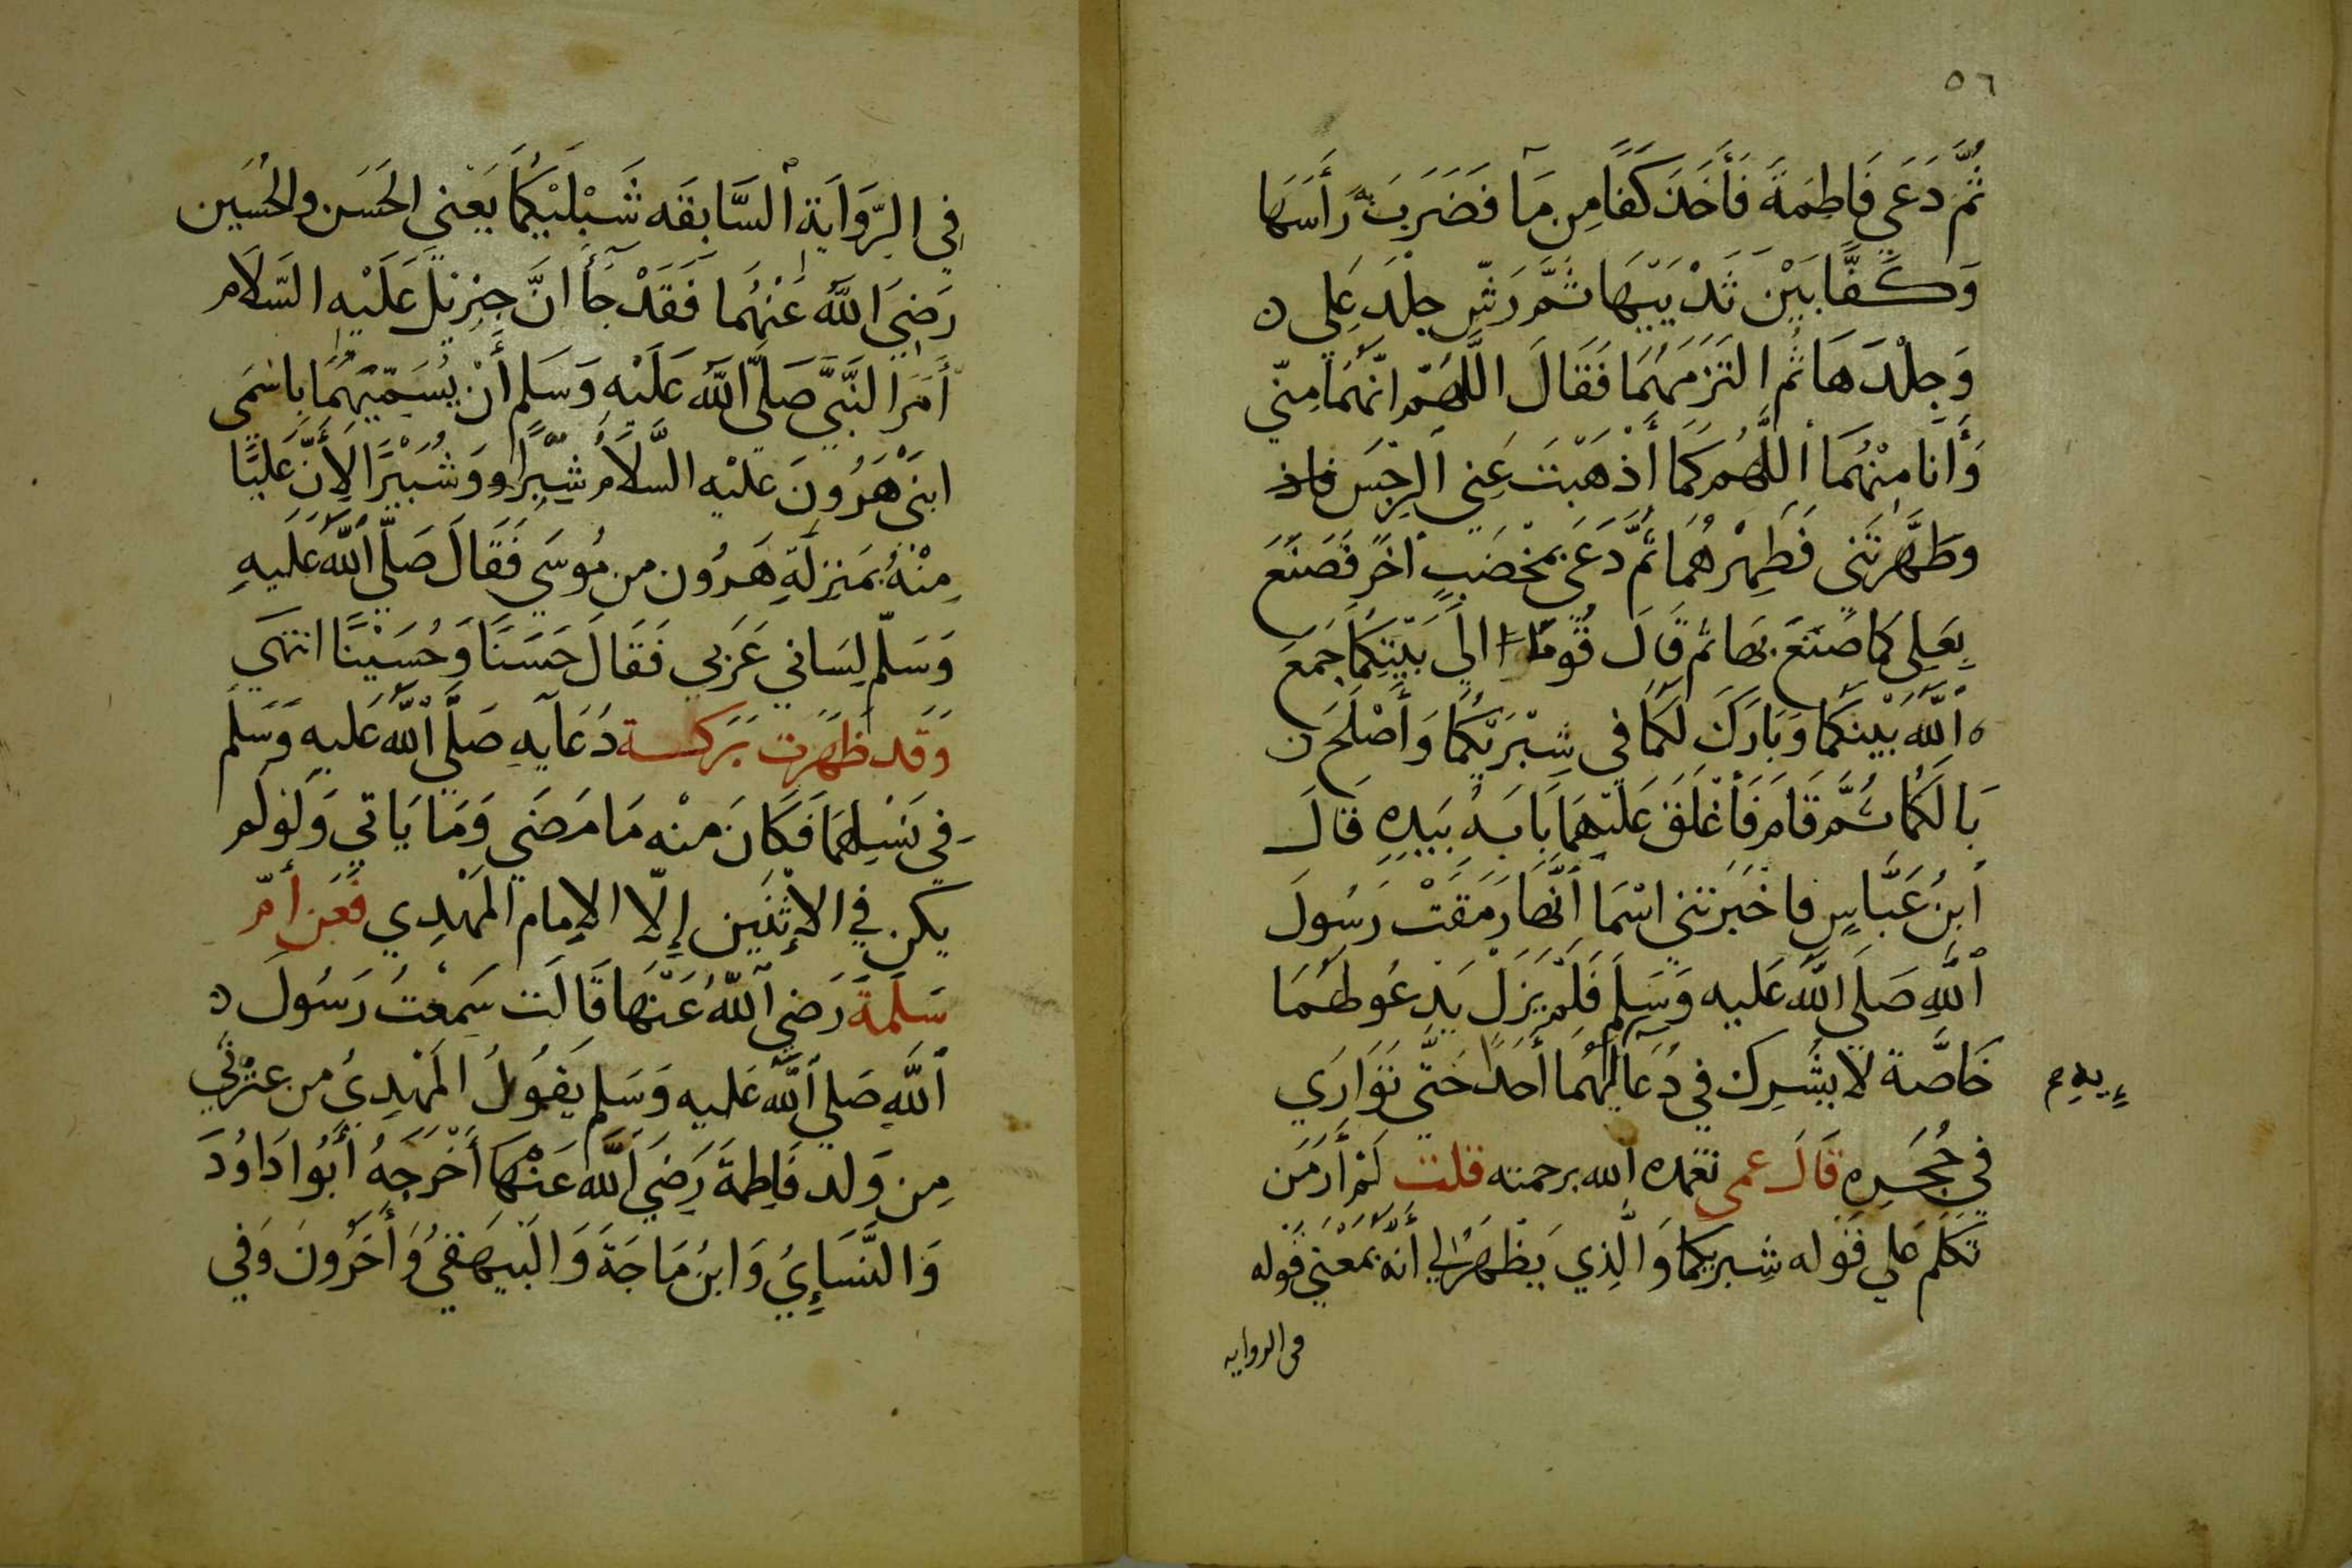 ٥٦
ثُمَّ دَعَى فَاطِمَةَ فَأَخَذَ كَفًا مِن مَآ فَضَرَبَ بِهِ رَأسَهَا
وَكَفًّا بَيْنَ ثَدْيَيْهَا ثُمَّ رَشّ جِلْدَ عَلي ه
وَجِلْدَهَا ثُم التَزَمَهُمَا فَقَالَ اللَّهُمّ انّهُمَا مِنّي
وَأَنَا مِنْهُمَا اللَّهُم كَمَا أَذْهَبْتَ عَنِي الرِّجْسَ
وطَهَّرتَنِى فَطَهِرْهُمَا ثُمَّ دَعَى بمْخضَبٍ اخَرَ فَصَنَعَ
بِعَلِى كمَا صَنَعَ بهَا ثم قَالَ قُومَا الي بَيْتِكُمَا جَمَعَ
اللَّهُ بَيْنَكُمَا وَبَارَكَ لَكُمَا في شِبْرَيْكُمَا وَأَصْلَحَ
بَالَكُمَا ثُمَّ قَامَ فَأَغْلَقَ عَلَيْهمَا بَابَهُ بيَدِهِ قَالَ
ابنُ عَبَّاسٍ فاخْبَرَتنِي اسْمَا أنَّهَا رَمَقَتْ رَسُولَ
اللهِ صَلي اللهُ عَليه وَسَلم فَلَمْ يَزَلْ يَدعُو لَهُمَا
خَاصَّة لا يشْرِك في دُعَآئِهمَا أحَدًا حَتَّى تَوَارَي
في حُجَرِه قَالَ عمى تغمده الله برحمته قلت لَمْ أَرَ مَن
تَكَلَّمَ عَلي قَوله شِبريكما وَالَّذِي يَظْهَرُ لي أنَّه بمَعْنى قَوله
في الروايه
فِي الرِّوَايَة السَّابقَه شَبْلَيْكُمَا يَعْني الحَسَن والحُسَين
رَضِيَ اللهُ عَنْهُمَا فَقَدْ جَآ أنَّ جِبْريلَ عَلَيْه السَّلَام
أَمَرَ النَّبِيَّ صَلَّى اللهُ عَلَيْه وَسَلم أَنْ يُسَمّيَهُمَا بِاسْمَى
ابنَىْ هَرُونَ عَليْه السَّلَامُ شبَّرًا وَشُبَيْرًا لِأَنَّ عَليًّا
مِنْهُ بمَنزِلَةِ هَرُون من مُوسَي فَقَالَ صَلَّى اللهُ عَليهِ
وَسَلّم لِسَاني عَرَبي فَقَالَ حَسَنًا وَحُسَيْنًا انتهَي
وَقَد ظَهَرَت بَرَكة دُعَايه صَلَّي اللهُ عَليه وَسَلم
فِي نَسْلِهمَا فَكَانَ منْه مَا مَضَي وَمَا يَاتي وَلَوْ لَم
يكن في الإثنَين إلّا الإمَام المَهْدِي فَعَن أمّ
سَلَمَةَ رَضِيَ اللهُ عَنْهَا قَالَت سَمعْتُ رَسُولَ ه
اللهِ صَلي اللهُ عَليه وَسَلم يَقُولُ المَهْدِيُ من عِتْرَتي
مِن وَلد فَاطِمَةَ رَضِيَ اللهُ عَنْهَا أَخْرَجَهُ أبُوا دَاوُدَ
وَالنَّسَائيُ وَابنُ مَاجَةَ وَالبَيهَقيُ وَأَخَرُونَ وَفي